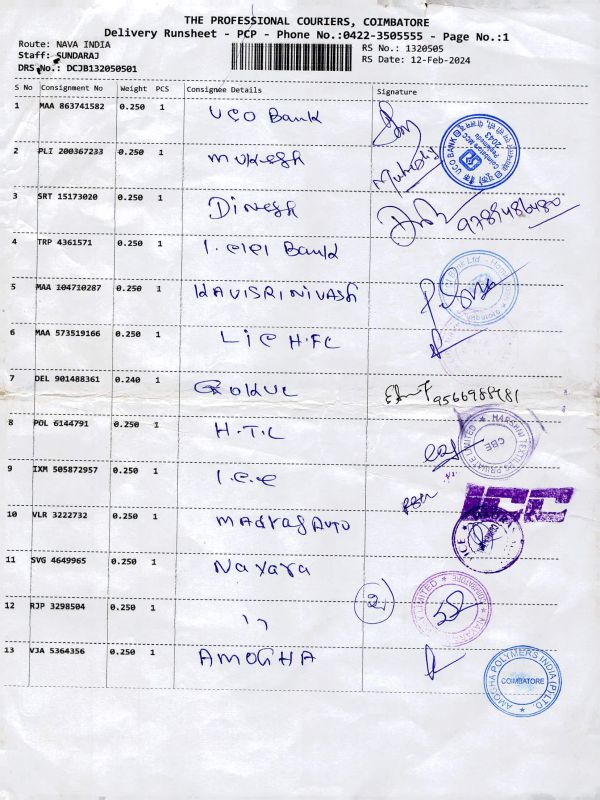 THE PROFESSIONAL COURIERS, COIMBATORE
Delivery Runsheet - PCP - Phone No.:0422-3505555 - Page No.:1
Route: NAVA INDIA
RS No.: 1320505
Staff: SUNDARAJ
RS Date: 12-Feb-2024
DRS No.: DCJB132050501
S No Consignment No Weight PCS Consignee Details Signature
1 MAA 863741582 0.250 1 UCO Bank
2 PLI 200367233 0.250 1 Mukesh
3 SRT 15173020 0.250 1 Dinesh 9789486480
4 TRP 4361571 0.250 1 I.C.I.C.I Bank
5 MAA 104710287 0.250 1 KAVISRINIVASH
6 MAA 573519166 0.250 1 LIC H.FC
7 DEL 901488361 0.240 1 GOKUL 9566988481
8 POL 6144791 0.250 1 H.T.C
9 IXM 505872957 0.250 1 I.C.C
ICC
10 VLR 3222732 0.250 1 MADRAS AUTO
11 SVG 4649965 0.250 1 Nayara
12 RJP 3298504 0.250 1 ,, 2
13 VJA 5364356 0.250 1 AMOGHA
AMOGHA POLYMERS INDIA (P) LTD.
COIMBATORE